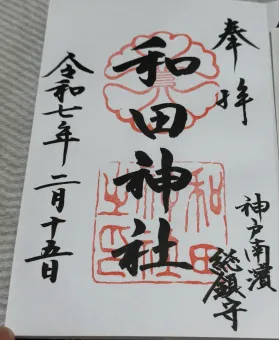 奉拝
神戸南濱
総鎮守
和田神社
令和七年 二月十五日